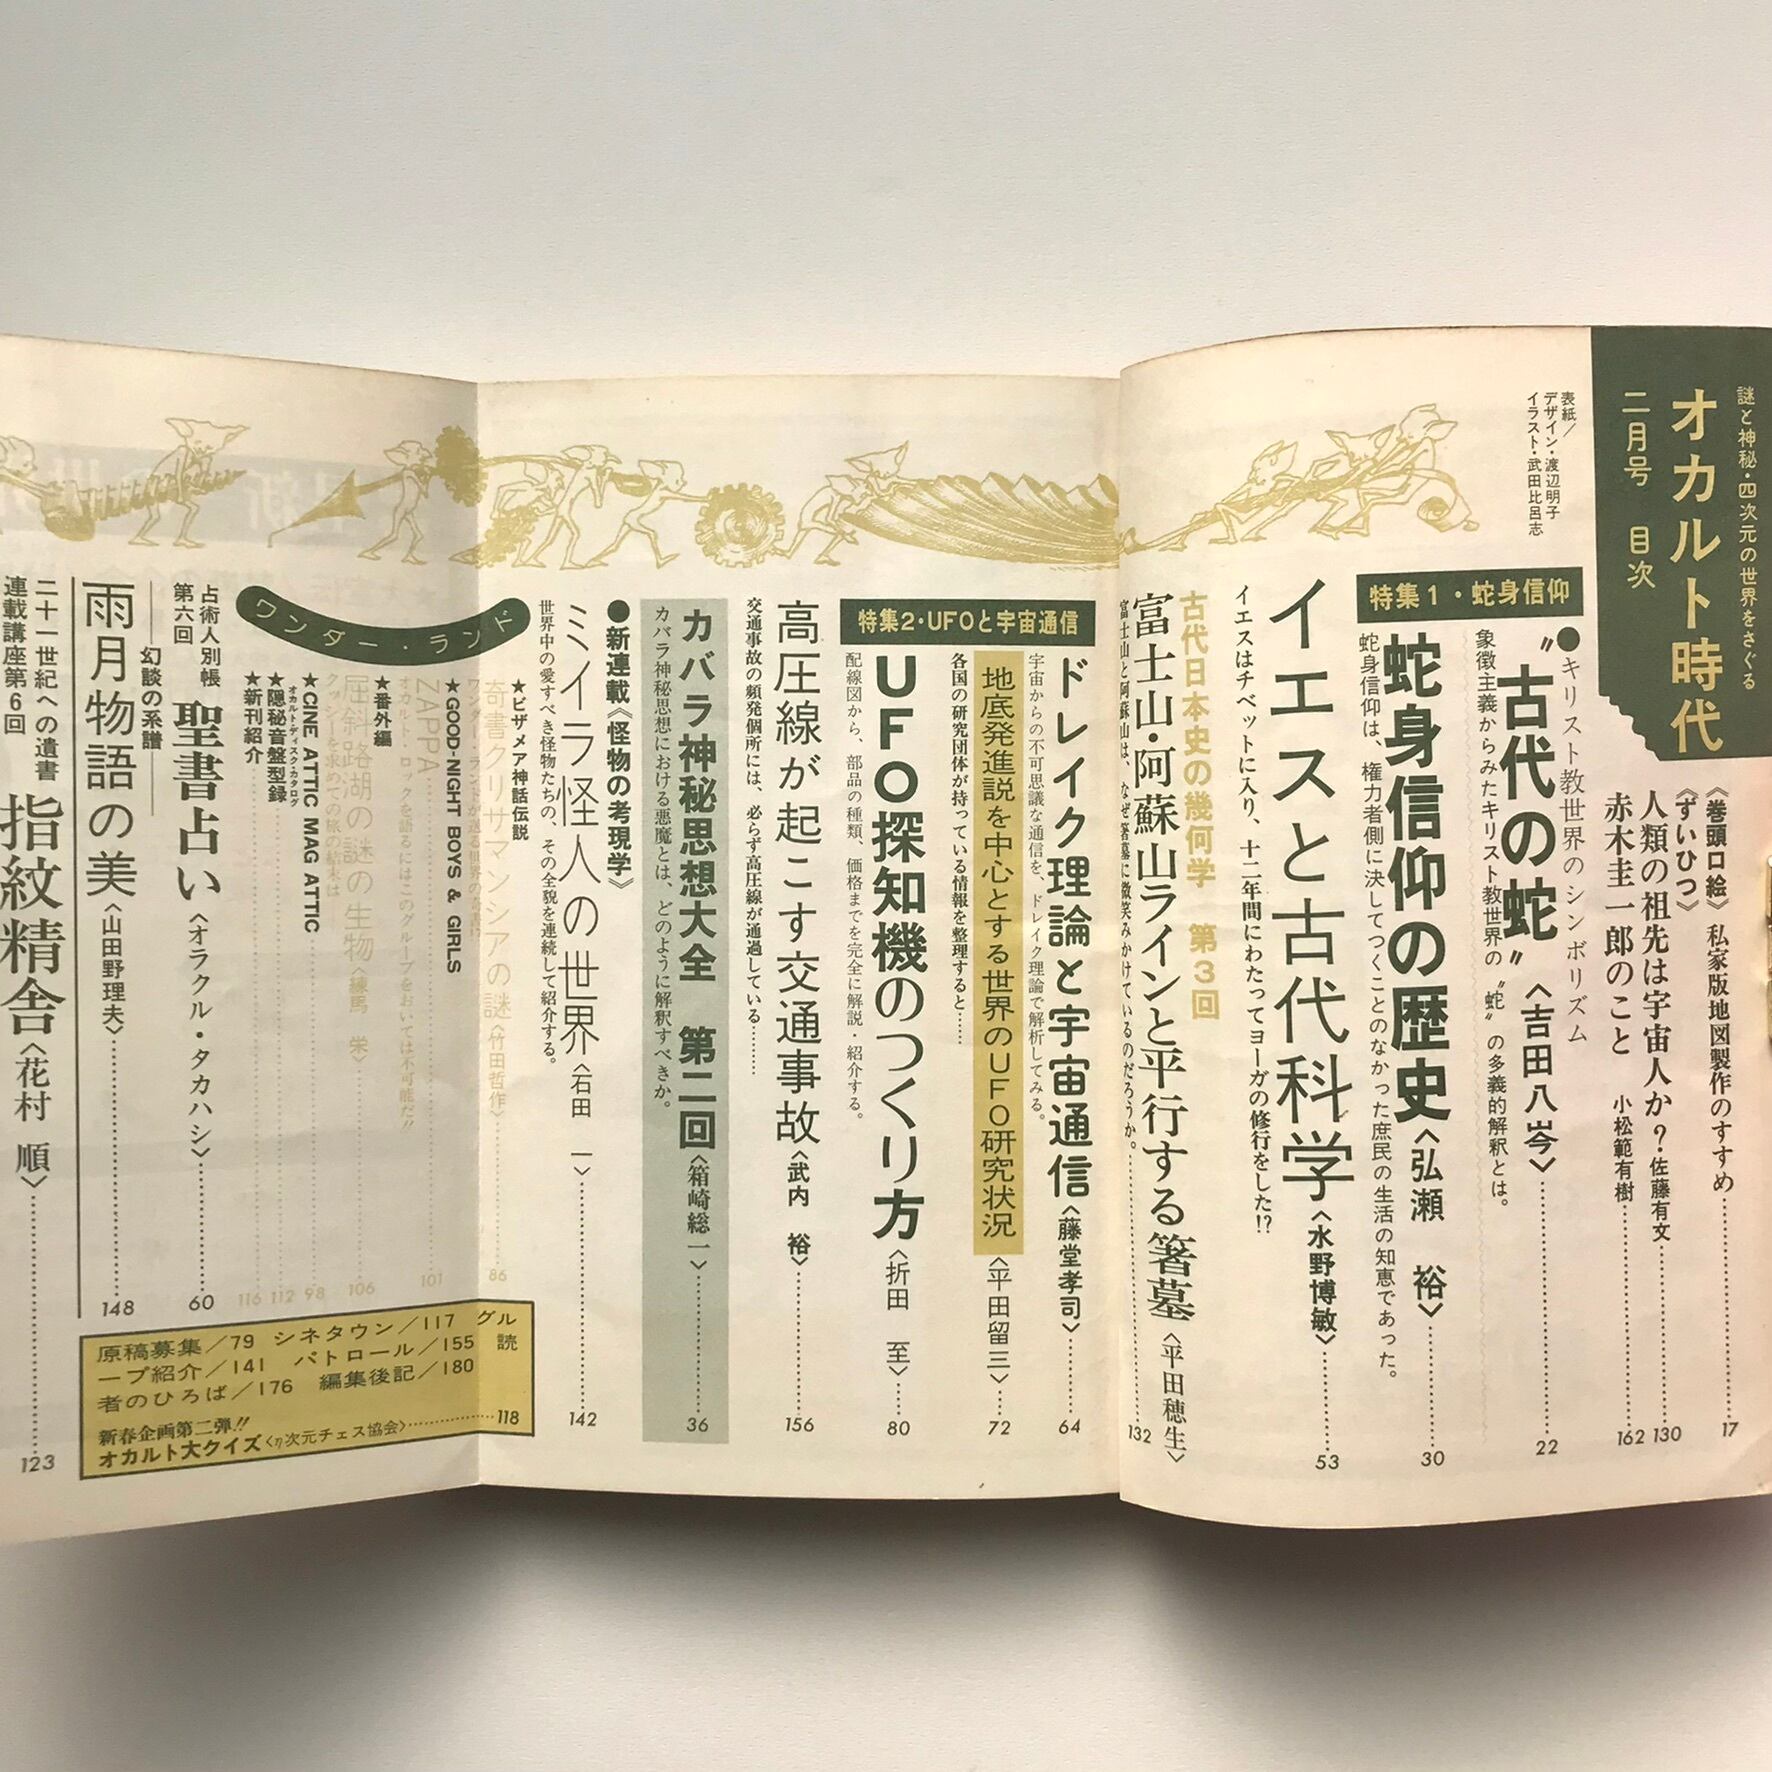 謎と神秘・四次元の世界をさぐる
オカルト時代
二月号　目次
表紙／
デザイン・渡辺明子
イラスト・武田比呂志
《巻頭口絵》私家版地図製作のすすめ……17
《ずいひつ》
人類の祖先は宇宙人か？佐藤有文……130
赤木圭一郎のこと　小松範有樹……162
特集1・蛇身信仰
●キリスト教世界のシンボリズム
〝古代の蛇〟〈吉田八岑〉……22
象徴主義からみたキリスト教世界の〝蛇〟の多義的解釈とは。
蛇身信仰の歴史〈弘瀬　裕〉……30
蛇身信仰は、権力者側に決してつくことのなかった庶民の生活の知恵であった。
イエスと古代科学〈水野博敏〉……53
イエスはチベットに入り、十二年間にわたってヨーガの修行をした!?
古代日本史の幾何学　第3回
富士山・阿蘇山ラインと平行する箸墓〈平田穂生〉
富士山と阿蘇山は、なぜ箸墓に微笑みかけているのだろうか。……132
特集2・UFOと宇宙通信
ドレイク理論と宇宙通信〈藤堂孝司〉……64
宇宙からの不可思議な通信を、ドレイク理論で解析してみる。
地底発進説を中心とする世界のUFO研究状況〈平田留三〉……72
各国の研究団体が持っている情報を整理すると……
UFO探知機のつくり方〈折田　至〉……80
配線図から、部品の種類、価格までを完全に解説・紹介する。
高圧線が起こす交通事故〈武内　裕〉……156
交通事故の頻発個所には、必らず高圧線が通過している……
カバラ神秘思想大全　第二回〈箱崎総一〉……36
カバラ神秘思想における悪魔とは、どのように解釈すべきか。
●新連載《怪物の考現学》
ミイラ怪人の世界〈石田　一〉……142
世界中の愛すべき怪物たちの、その全貌を連続して紹介する。
ワンダー・ランド
★ビザメア神話伝説
奇書クリサマンシアの謎〈竹田哲作〉……86
★GOOD-NIGHT BOYS & GIRLS
ZAPPA……101
オカルト・ロックを語るにはこのグループをおいては不可能だ!!
★番外編
屈斜路湖の謎の生物〈練馬　栄〉……106
クッシーを求めての旅の結末は
★CINE ATTIC MAG ATTIC……98
オカルト・ディスク・カタログ
★隠秘音盤型録……112
★新刊紹介……116
占術人別帳
第六回
聖書占い〈オラクル・タカハシ〉……60
――幻談の系譜――
雨月物語の美〈山田野理夫〉……148
二十一世紀への遺書
連載講座第6回
指紋精舎〈花村　順〉……123
原稿募集／79　シネタウン／117　グル
ープ紹介／141　パトロール／155　読
者のひろば／176　編集後記／180
新春企画第二弾!!
オカルト大クイズ〈η次元チェス協会〉……118